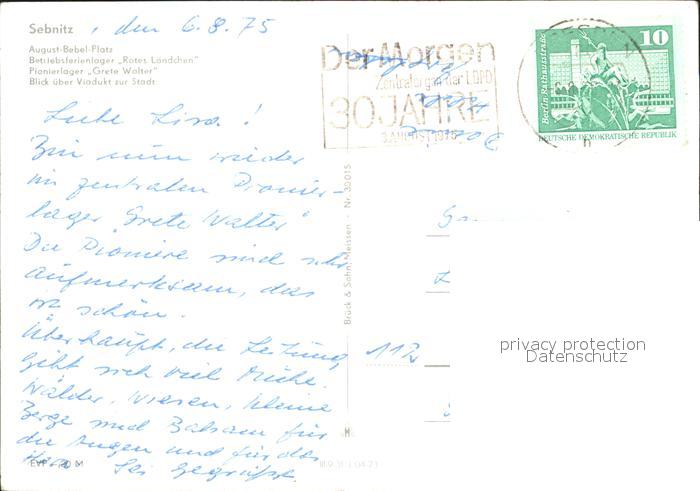 Sebnitz, den 6.8.75
August-Bebel-Platz
Betriebsferienlager „Rotes Ländchen"
Pionierlager „Grete Walter"
Blick über Viadukt zur Stadt
Der Morgen
Zentralorgan der LDPD
30 JAHRE
3. AUGUST 1975
10
Berlin, Rathausstraße
DEUTSCHE DEMOKRATISCHE REPUBLIK
Liebe Lisa!
Bin nun wieder
im zentralen Pionier-
lager „Grete Walter"
Die Pioniere sind sehr
aufmerksam, das
ist schön.
Überhaupt, die Leitung
gibt sich viel Mühe.
Wälder, Wiesen, kleine
Berge sind Balsam für
die Augen und für das
Herz. Sei gegrüßt
Brück & Sohn, Meissen - Nr. 39015
112
privacy protection
Datenschutz
EVP -,20 M